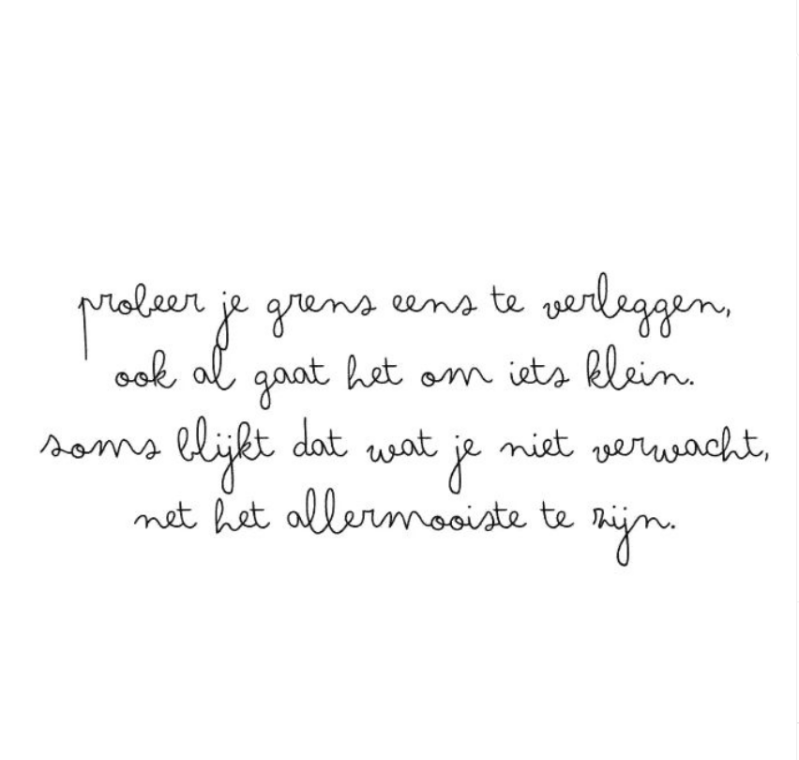 probeer je grens eens te verleggen,
ook al gaat het om iets klein.
soms blijkt dat wat je niet verwacht,
net het allermooiste te zijn.